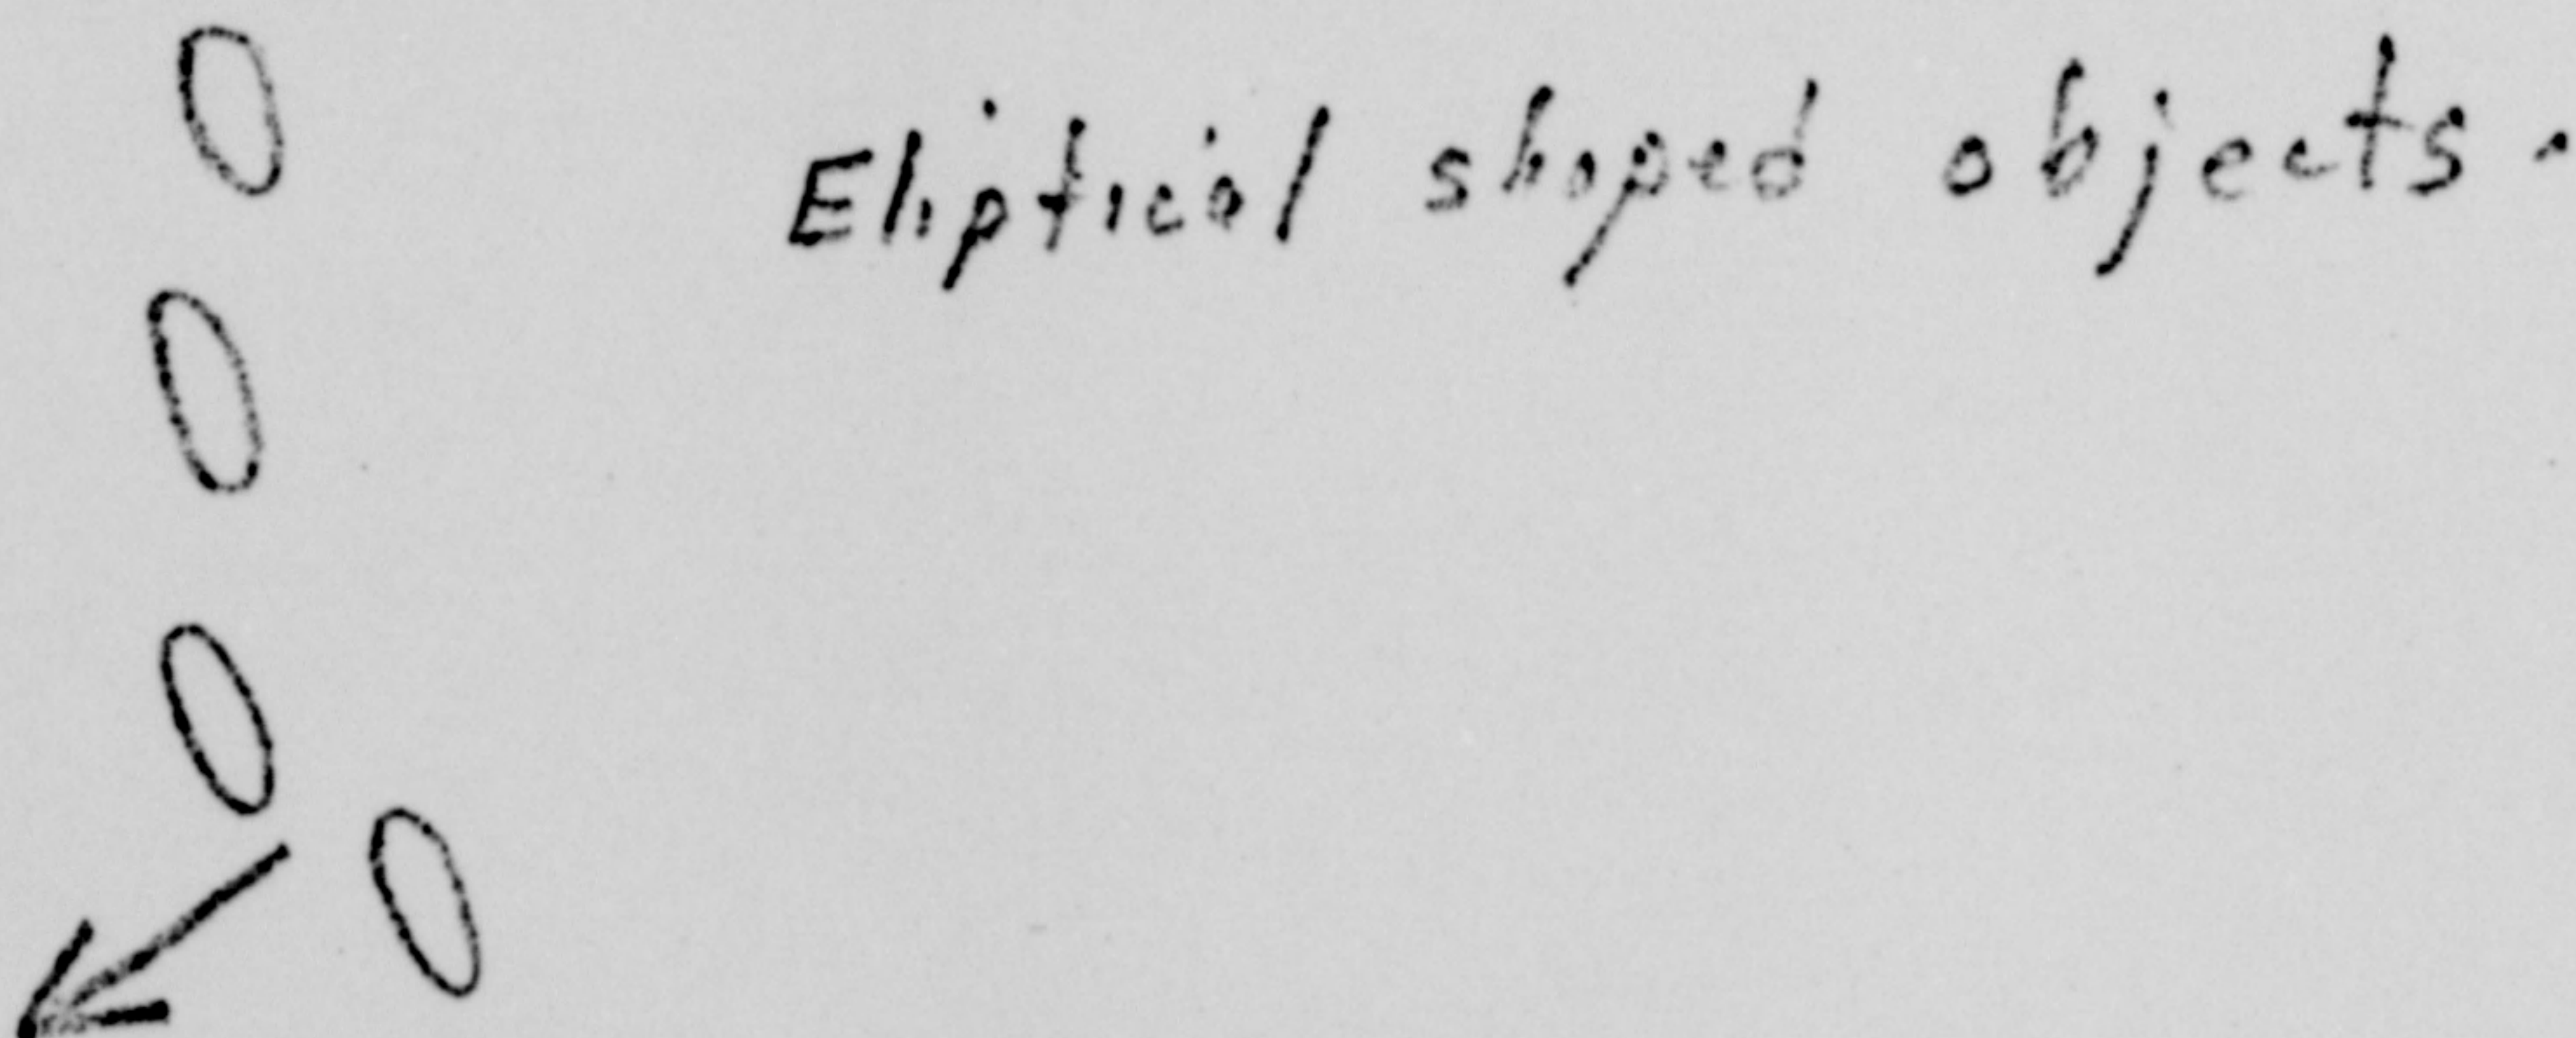 Eliptical shaped objects.